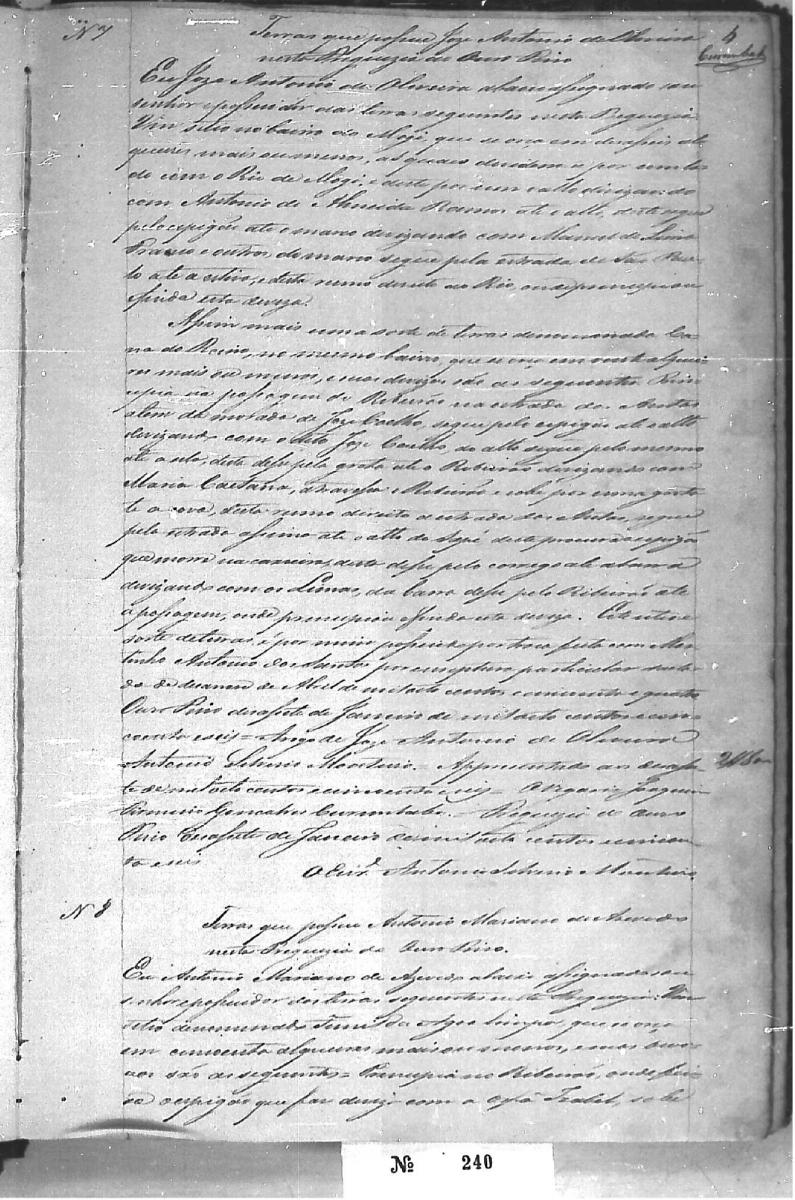 N 7
Terras que possue Joze Antonio de Oliveira
nesta Freguezia de Ouro Fino
4
Eu Joze Antonio de Oliveira abaixo assignado sou
senhor e possuidor das terras seguintes nesta Freguezia
Um sitio no bairro do Mogi que se orsa em
queires mais ou menos, as quaes devidem por um la-
do com o Rio de Mogi, e deste por um vallo divizando
com Antonio de Almeida Ramos até o alto, deste segue
pelo espigão até o marco devizando com Manoel de Lima
e outros, do marco segue pela estrada de São Pau-
lo até a estiva, e desta rumo direito ao Rio, onde principiou
e finda esta deviza.
Assim mais uma sorte de terras denominada Ca-
no mesmo bairro, que se orça em vinte alquei-
res mais ou menos, e suas devizas são as seguintes Prin-
cipia na passagem do Ribeirão na estrada das Antas
alem da morada de Joze Coelho, segue pelo espigão até o alto
devizando com o dito Joze Coelho, do alto segue pelo mesmo
até o deste desse pela grota até o Ribeirão devizando com
Maria Caetana, atravessa o Ribeirão e sobe por uma grota
te a cova, desta rumo direito a estrada das Antas, segue
pela estrada assima até o alto do Sapé deste procura o espigão
que morre na desse pelo corrego até a barra
devizando com os Limas, da barra desse pelo Ribeirão até
a passagem, onde principiou e finda esta deviza.
sorte de terras é por mim possuida por troca feita com Mar-
tinho Antonio dos Santos por escriptura particular data-
da de de Abril de mil oito centos e cincoenta e quatro
Ouro Fino desasete de Janeiro de mil oito centos e cin-
coenta e seis = Arogo de Joze Antonio de Oliveira
Antonio Silverio Monteiro. = Appresentado aos desase-
te de mil oito centos e cincoenta e seis = O Vigario Joaquim
Firmino Gonçalves Curumbaba. = Freguezia de Ouro
Fino desasete de Janeiro de mil oito centos e cincoen-
ta e seis
O Escr.ᵐ Antonio Silverio Monteiro
N 8
Terras que possue Antonio Mariano de Azevedo
nesta Freguezia de Ouro Fino.
Eu Antonio Mariano de Azevedo abaixo assignado sou
senhor e possuidor das terras seguintes nesta Freguezia. Um
sitio denominado da Agoa Limpa, que se orça
em cincoenta alqueires mais ou menos, e suas devi-
zas são as seguintes = Principia no Ribeirão, onde
o espigão que faz deviza com a Izabel, sobe
Nº 240